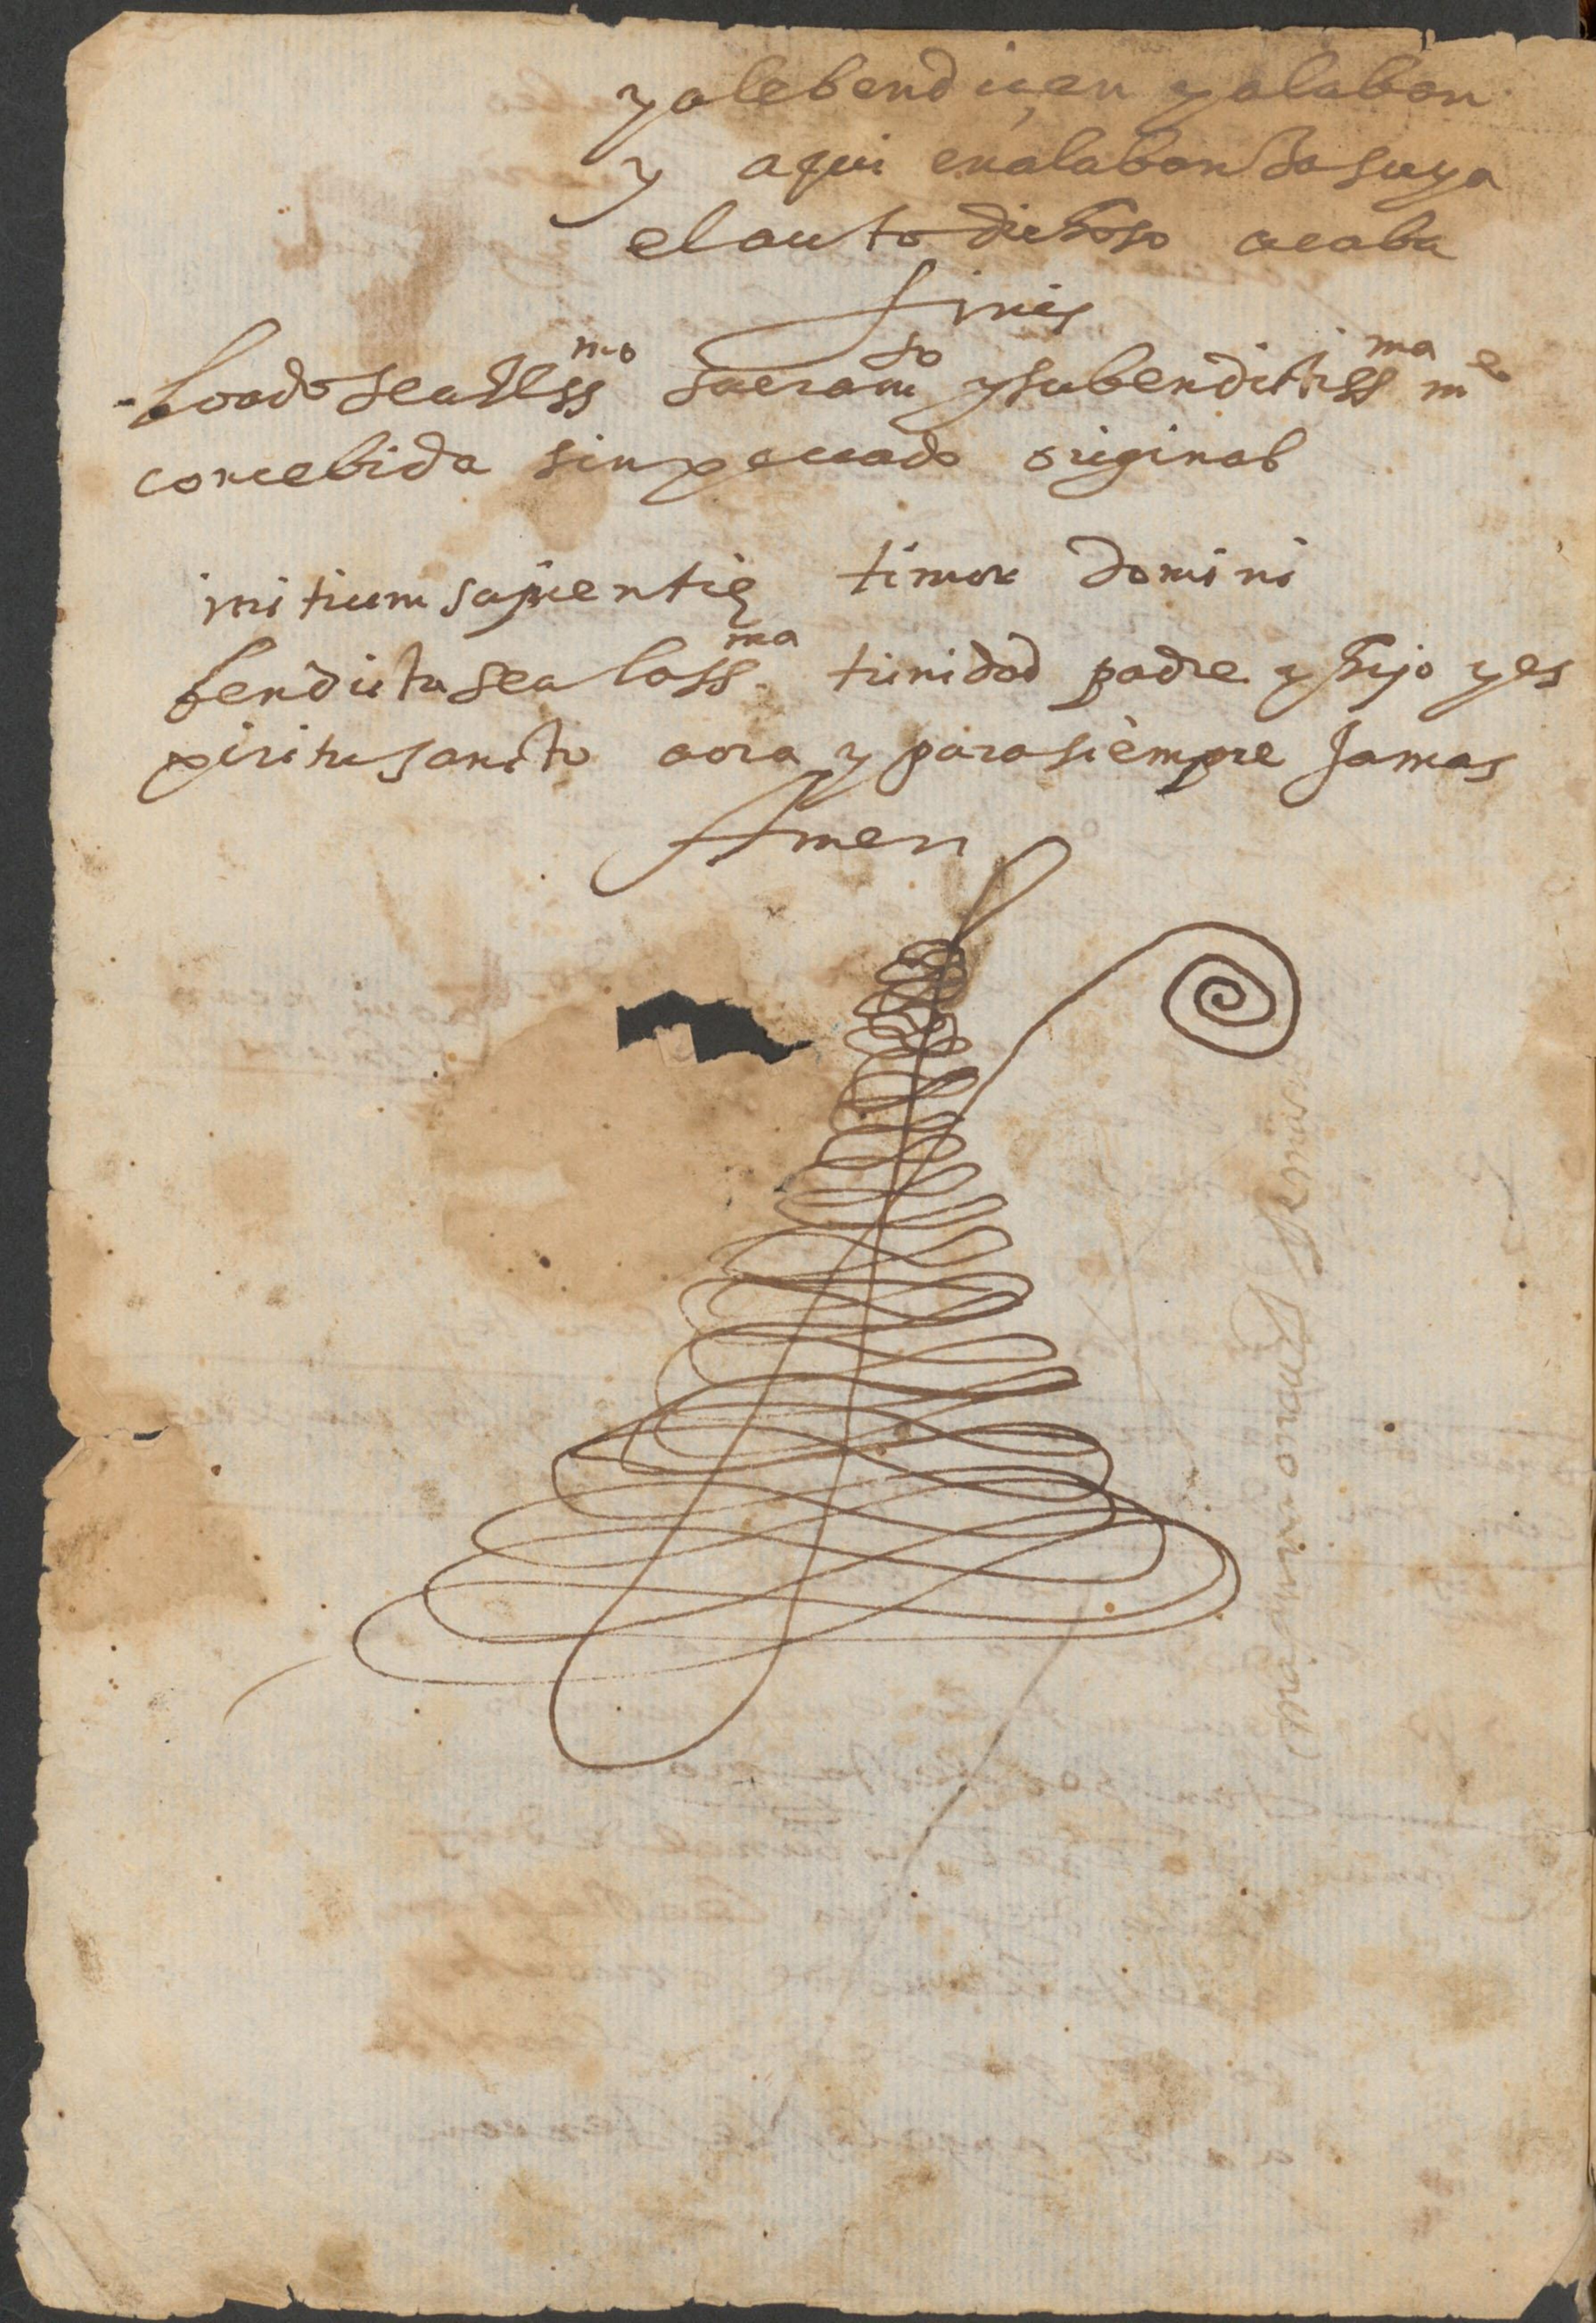 y ale bendiçen y alaban
y aqui en alabansa suya
el auto dichoso acaba
finis
loado sea el ss^mo sacram^to y su benditiss^ma m^e
concebida sin pecado original
initium sapientię timor domini
bendicta sea la ss^ma trinidad padre y hijo y es
piritu sancto aora y para siempre Jamas
Amen